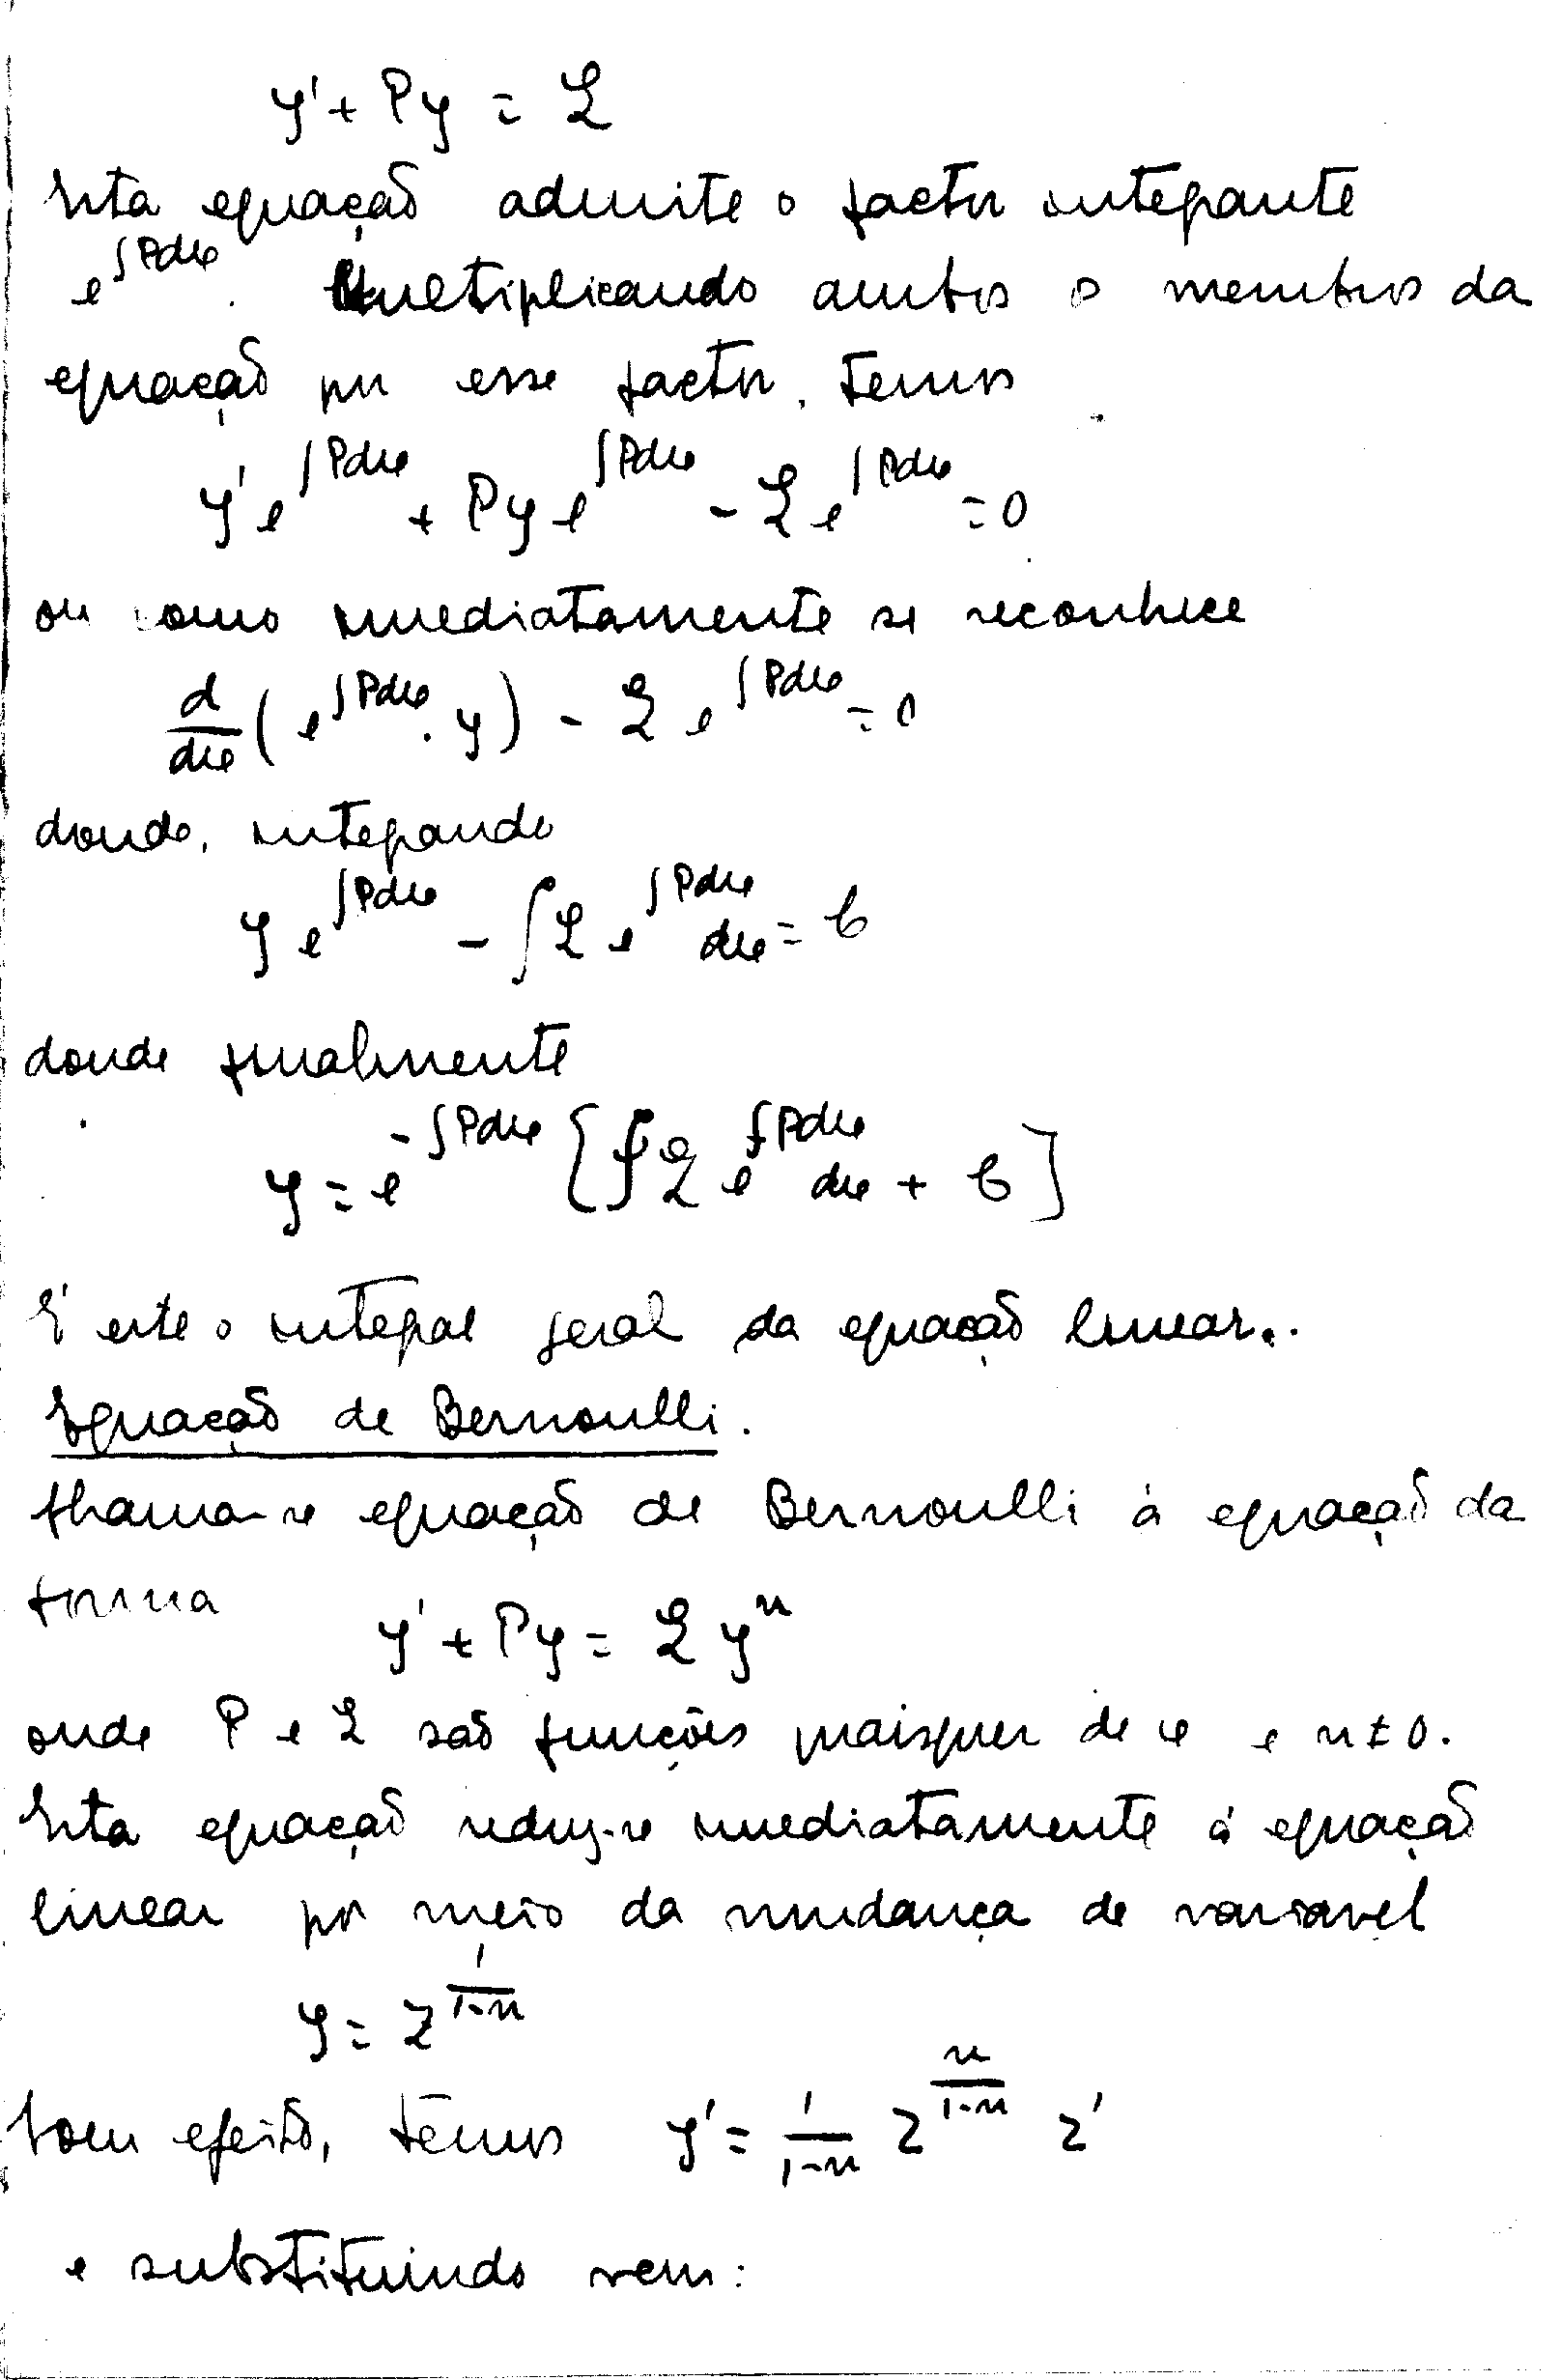 y' + Py = Q
Esta equação admite o factor integrante
e^{∫Pdx}. Multiplicando ambos os membros da
equação por esse factor, temos
y' e^{∫Pdx} + Py e^{∫Pdx} - Q e^{∫Pdx} = 0
ou como imediatamente se reconhece
d/dx ( e^{∫Pdx} . y ) - Q e^{∫Pdx} = 0
donde, integrando
y e^{∫Pdx} - ∫ Q e^{∫Pdx} dx = C
donde finalmente
y = e^{-∫Pdx} [ ∫ Q e^{∫Pdx} dx + C ]
É este o integral geral da equação linear..
Equação de Bernoulli.
Chama-se equação de Bernoulli à equação da
forma
y' + Py = Q y^n
onde P e Q são funções quaisquer de x e n ≠ 0.
Esta equação reduz-se imediatamente á equação
linear por meio da mudança de variavel
y = z^{1/(1-n)}
Com efeito, têmos y' = 1/(1-n) z^{n/(1-n)} z'
e substituindo vem: